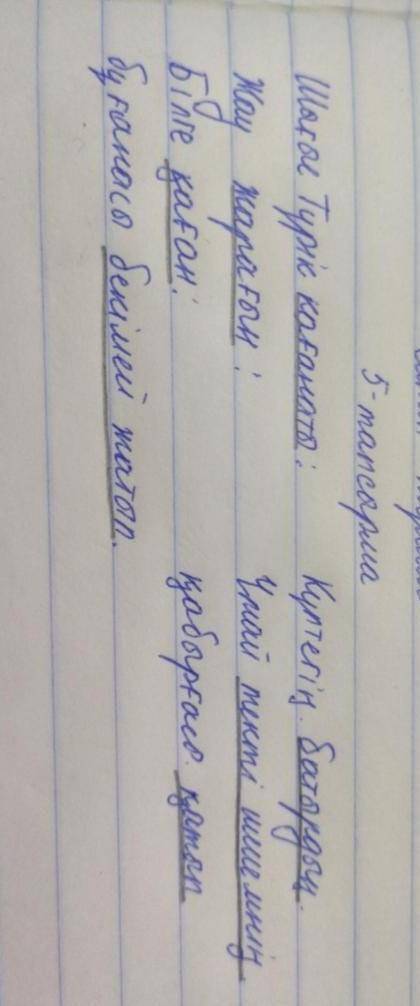 5-тапсырма
Шығыс Түрік қағанаты; Күлтегін батырдың.
Жау жарағын; Ұмай текті шешемнің.
Білге қаған; қабырғасы қатып
бұғанасы бекімей жатып.